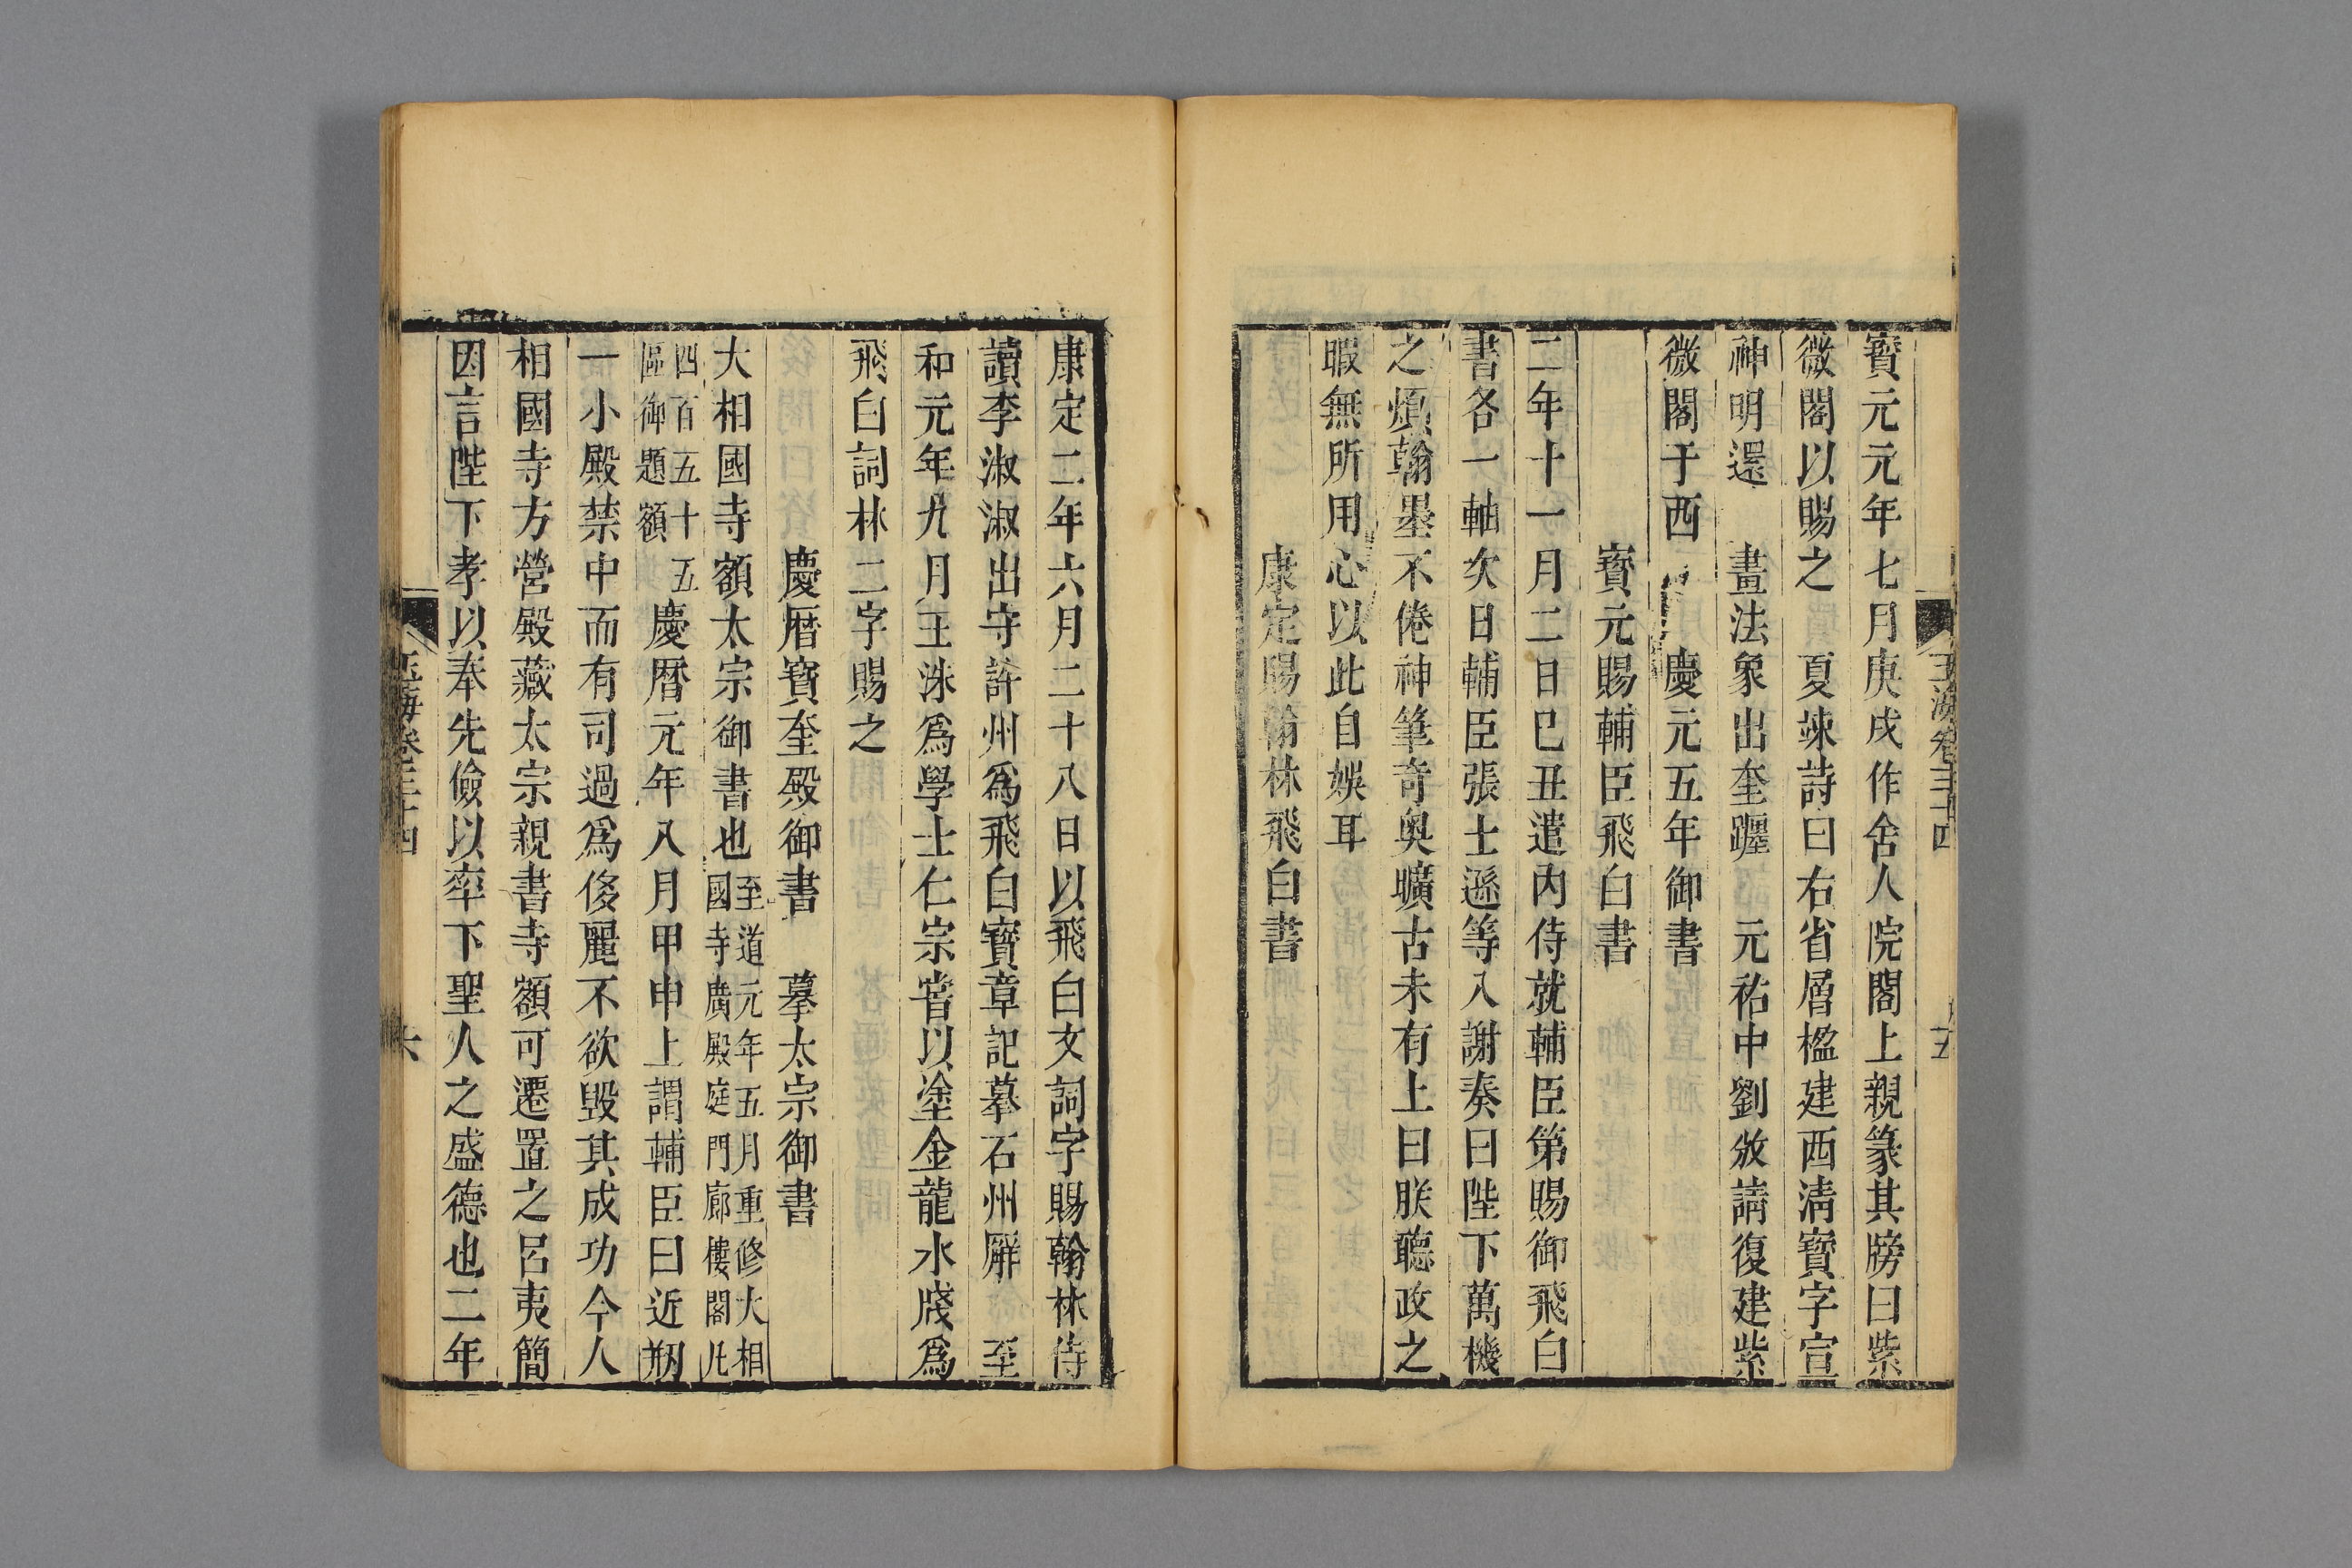 玉海卷三十四
五
寶元元年七月庚戌作舍人院閣上親篆其牓曰紫
微閣以賜之 夏竦詩曰右省層楹建西淸寶字宣
神明還 畫法象出奎躔 元祐中劉攽請復建紫
微閣于西 慶元五年御書
寶元賜輔臣飛白書
二年十一月二日巳丑遣內侍就輔臣第賜御飛白
書各一軸次日輔臣張士遜等入謝奏曰陛下萬機
之煩翰墨不倦神筆竒奧曠古未有上曰朕聽政之
暇無所用心以此自娛耳
康定賜翰林飛白書
康定二年六月二十八日以飛白文詞字賜翰林侍
讀李淑淑出守許州爲飛白寶章記摹石州廨 至
和元年九月王洙爲學士仁宗嘗以塗金龍水牋爲
飛白詞林二字賜之
慶曆寶奎殿御書 摹太宗御書
大相國寺額太宗御書也至道元年五月重修大相
國寺廣殿庭門廊樓閣凡
四百五十五
區御題額 慶曆元年八月甲申上謂輔臣曰近剏
一小殿禁中而有司過爲侈麗不欲毀其成功今人
相國寺方營殿藏太宗親書寺額可遷置之呂夷簡
因言陛下孝以奉先儉以率下聖人之盛德也二年
玉海卷三十四
六